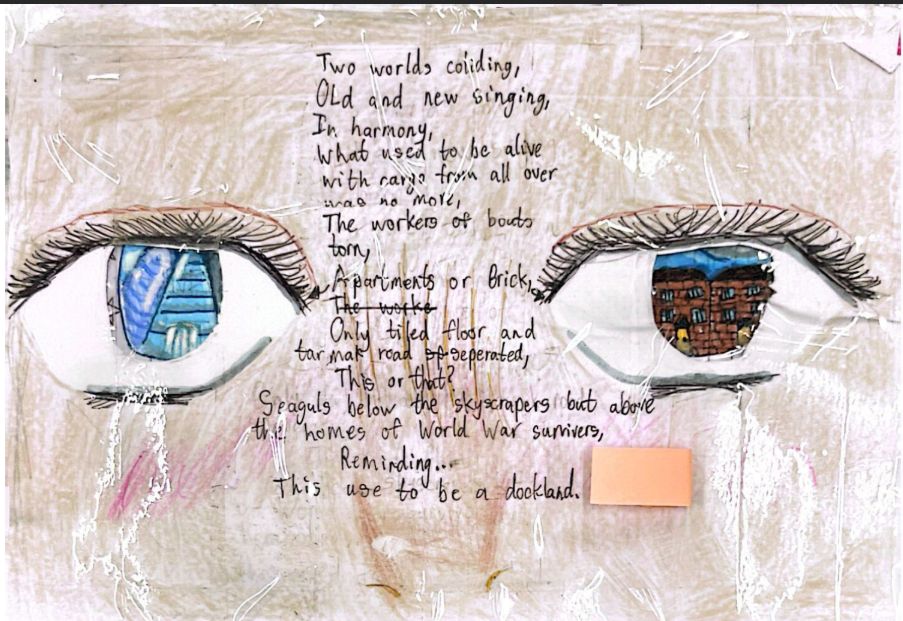 Two worlds coliding,
Old and new singing,
In harmony,
What used to be alive
with cargo from all over
was no more,
The workers of bouts
torn,
Apartments or Brick,
The worke
Only tiled floor and
tarmak road sp seperated,
This or that?
Seaguls below the skyscrapers but above
the homes of World War survivers,
Reminding...
This use to be a dockland.